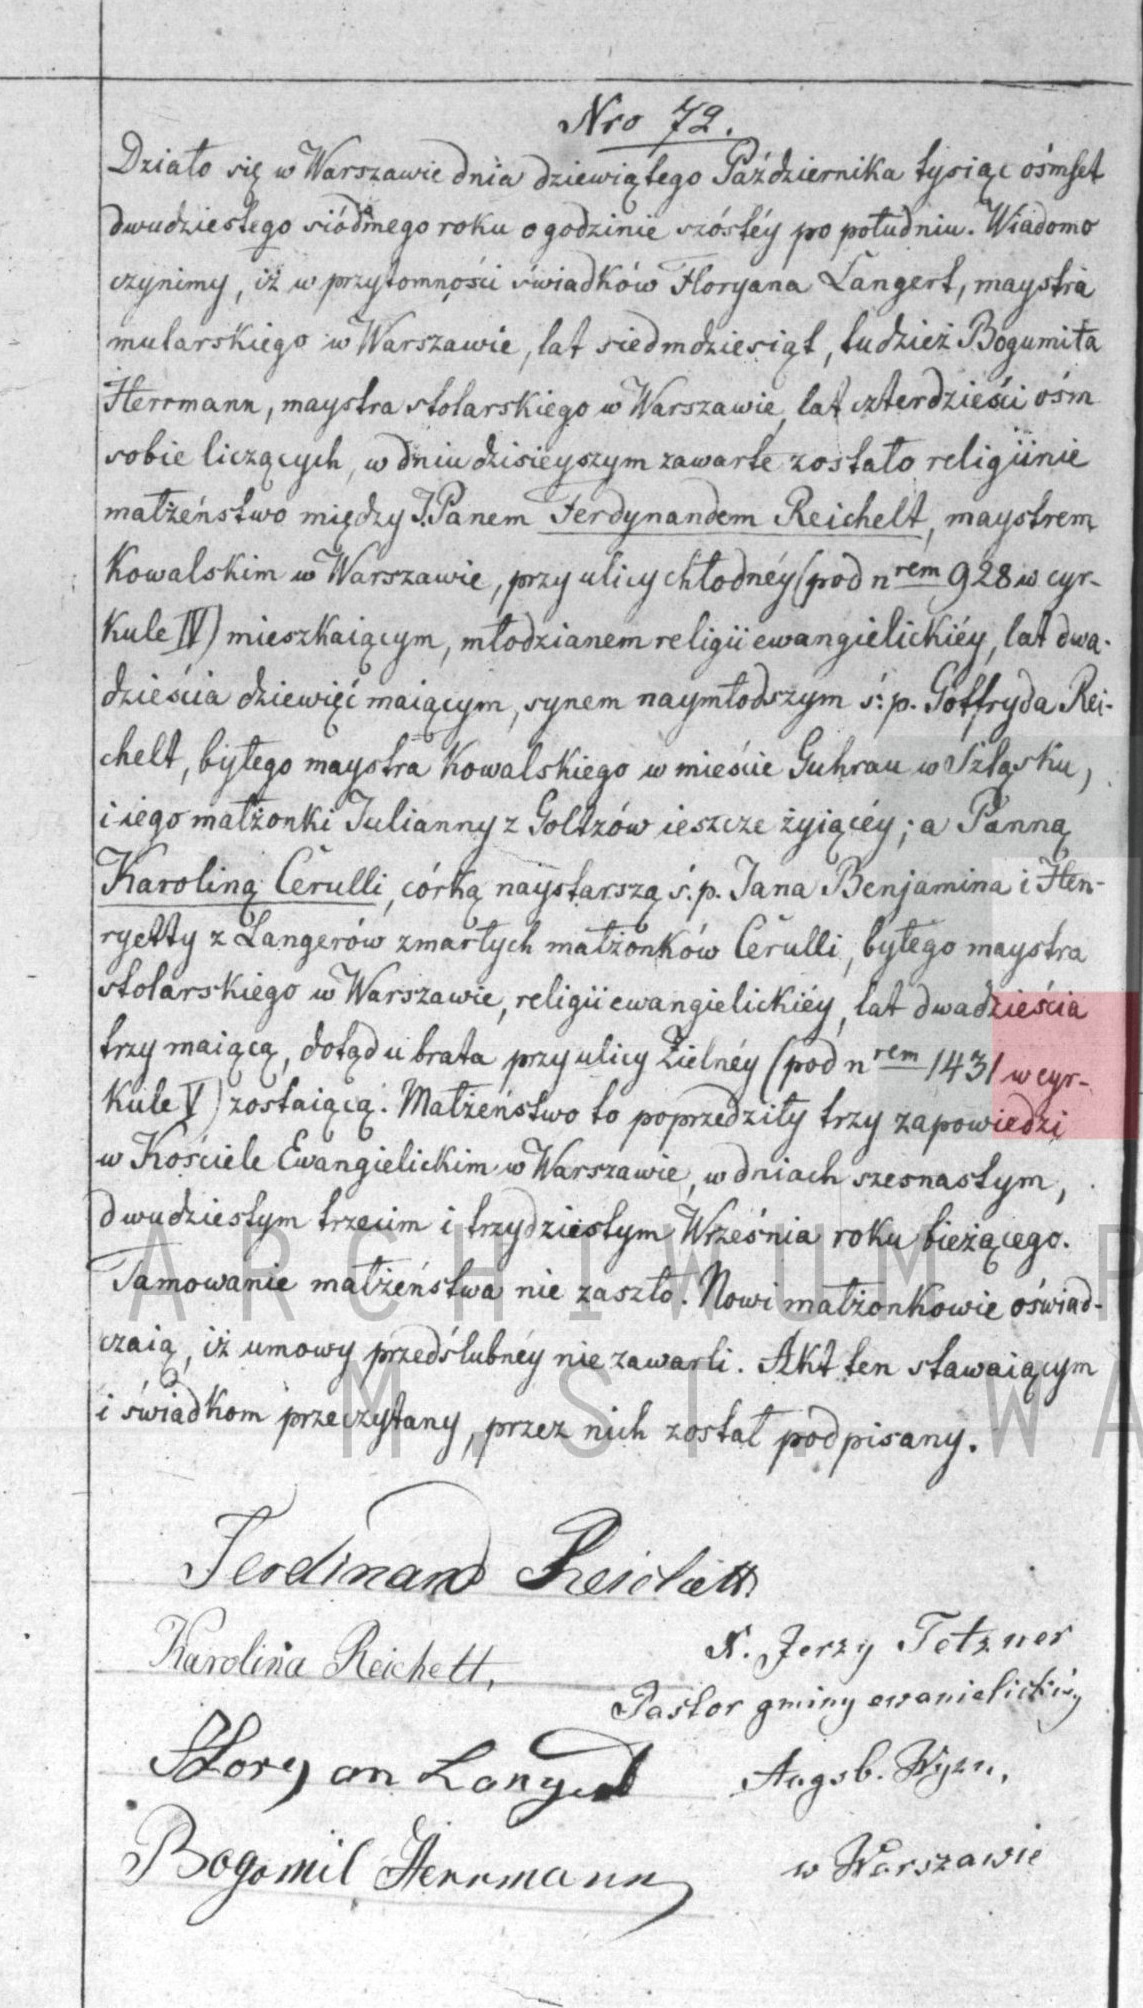 Nro 72.
Działo się w Warszawie dnia dziewiątego Października tysiąc ośmset
dwudziestego siódmego roku o godzinie szóstéy po południu. Wiadomo
czynimy, iż w przytomności świadków Floryana Langert, maystra
mularskiego w Warszawie, lat siedmdziesiąt, tudzież Bogumiła
Herrmann, maystra stolarskiego w Warszawie, lat czterdzieści ośm
sobie liczących, w dniu dzisieyszym zawarte zostało religiinie
małżeństwo między J.Panem Ferdynandem Reichelt, maystrem
Kowalskim w Warszawie, przy ulicy chłodnéy (pod nrem 928 w cyr-
kule IV) mieszkaiącym, młodzianem religii ewangielickiéy, lat dwa-
dzieścia dziewięć maiącym, synem naymłodszym ś. p. Gottfryda Rei-
chelt, byłego maystra Kowalskiego w mieście Guhrau w Szląsku,
i iego małżonki Julianny z Goltzów ieszcze żyiącéy; a Panną
Karoliną Cerulli, córką naystarszą ś. p. Jana Benjamina i Hen-
ryetty z Langerów zmarłych małżonków Cerulli, byłego maystra
stolarskiego w Warszawie, religii ewangielickiéy, lat dwadzieścia
trzy maiącą, dotąd u brata przy ulicy Zielnéy (pod nrem 1431 w cyr-
kule V) zostaiącą. Małżeństwo to poprzedziły trzy zapowiedzi
w Kościele Ewangielickim w Warszawie, w dniach szesnastym,
dwudziestym trzecim i trzydziestym Września roku bieżącego.
Tamowanie małżeństwa nie zaszło. Nowi małżonkowie oświad-
czaią, iż umowy przedślubnéy nie zawarli. Akt ten stawaiącym
i świadkom przeczytany, przez nich został podpisany.
Ferdinand Reichelt
Karolina Reichelt,
X. Jerzy Tetzner
Pastor gminy ewanielickiéy
Floryan Langert
Augsb. Wyzn.
Bogomil Herrmann
w Warszawie
ARCHIWUM P
M. ST. WA